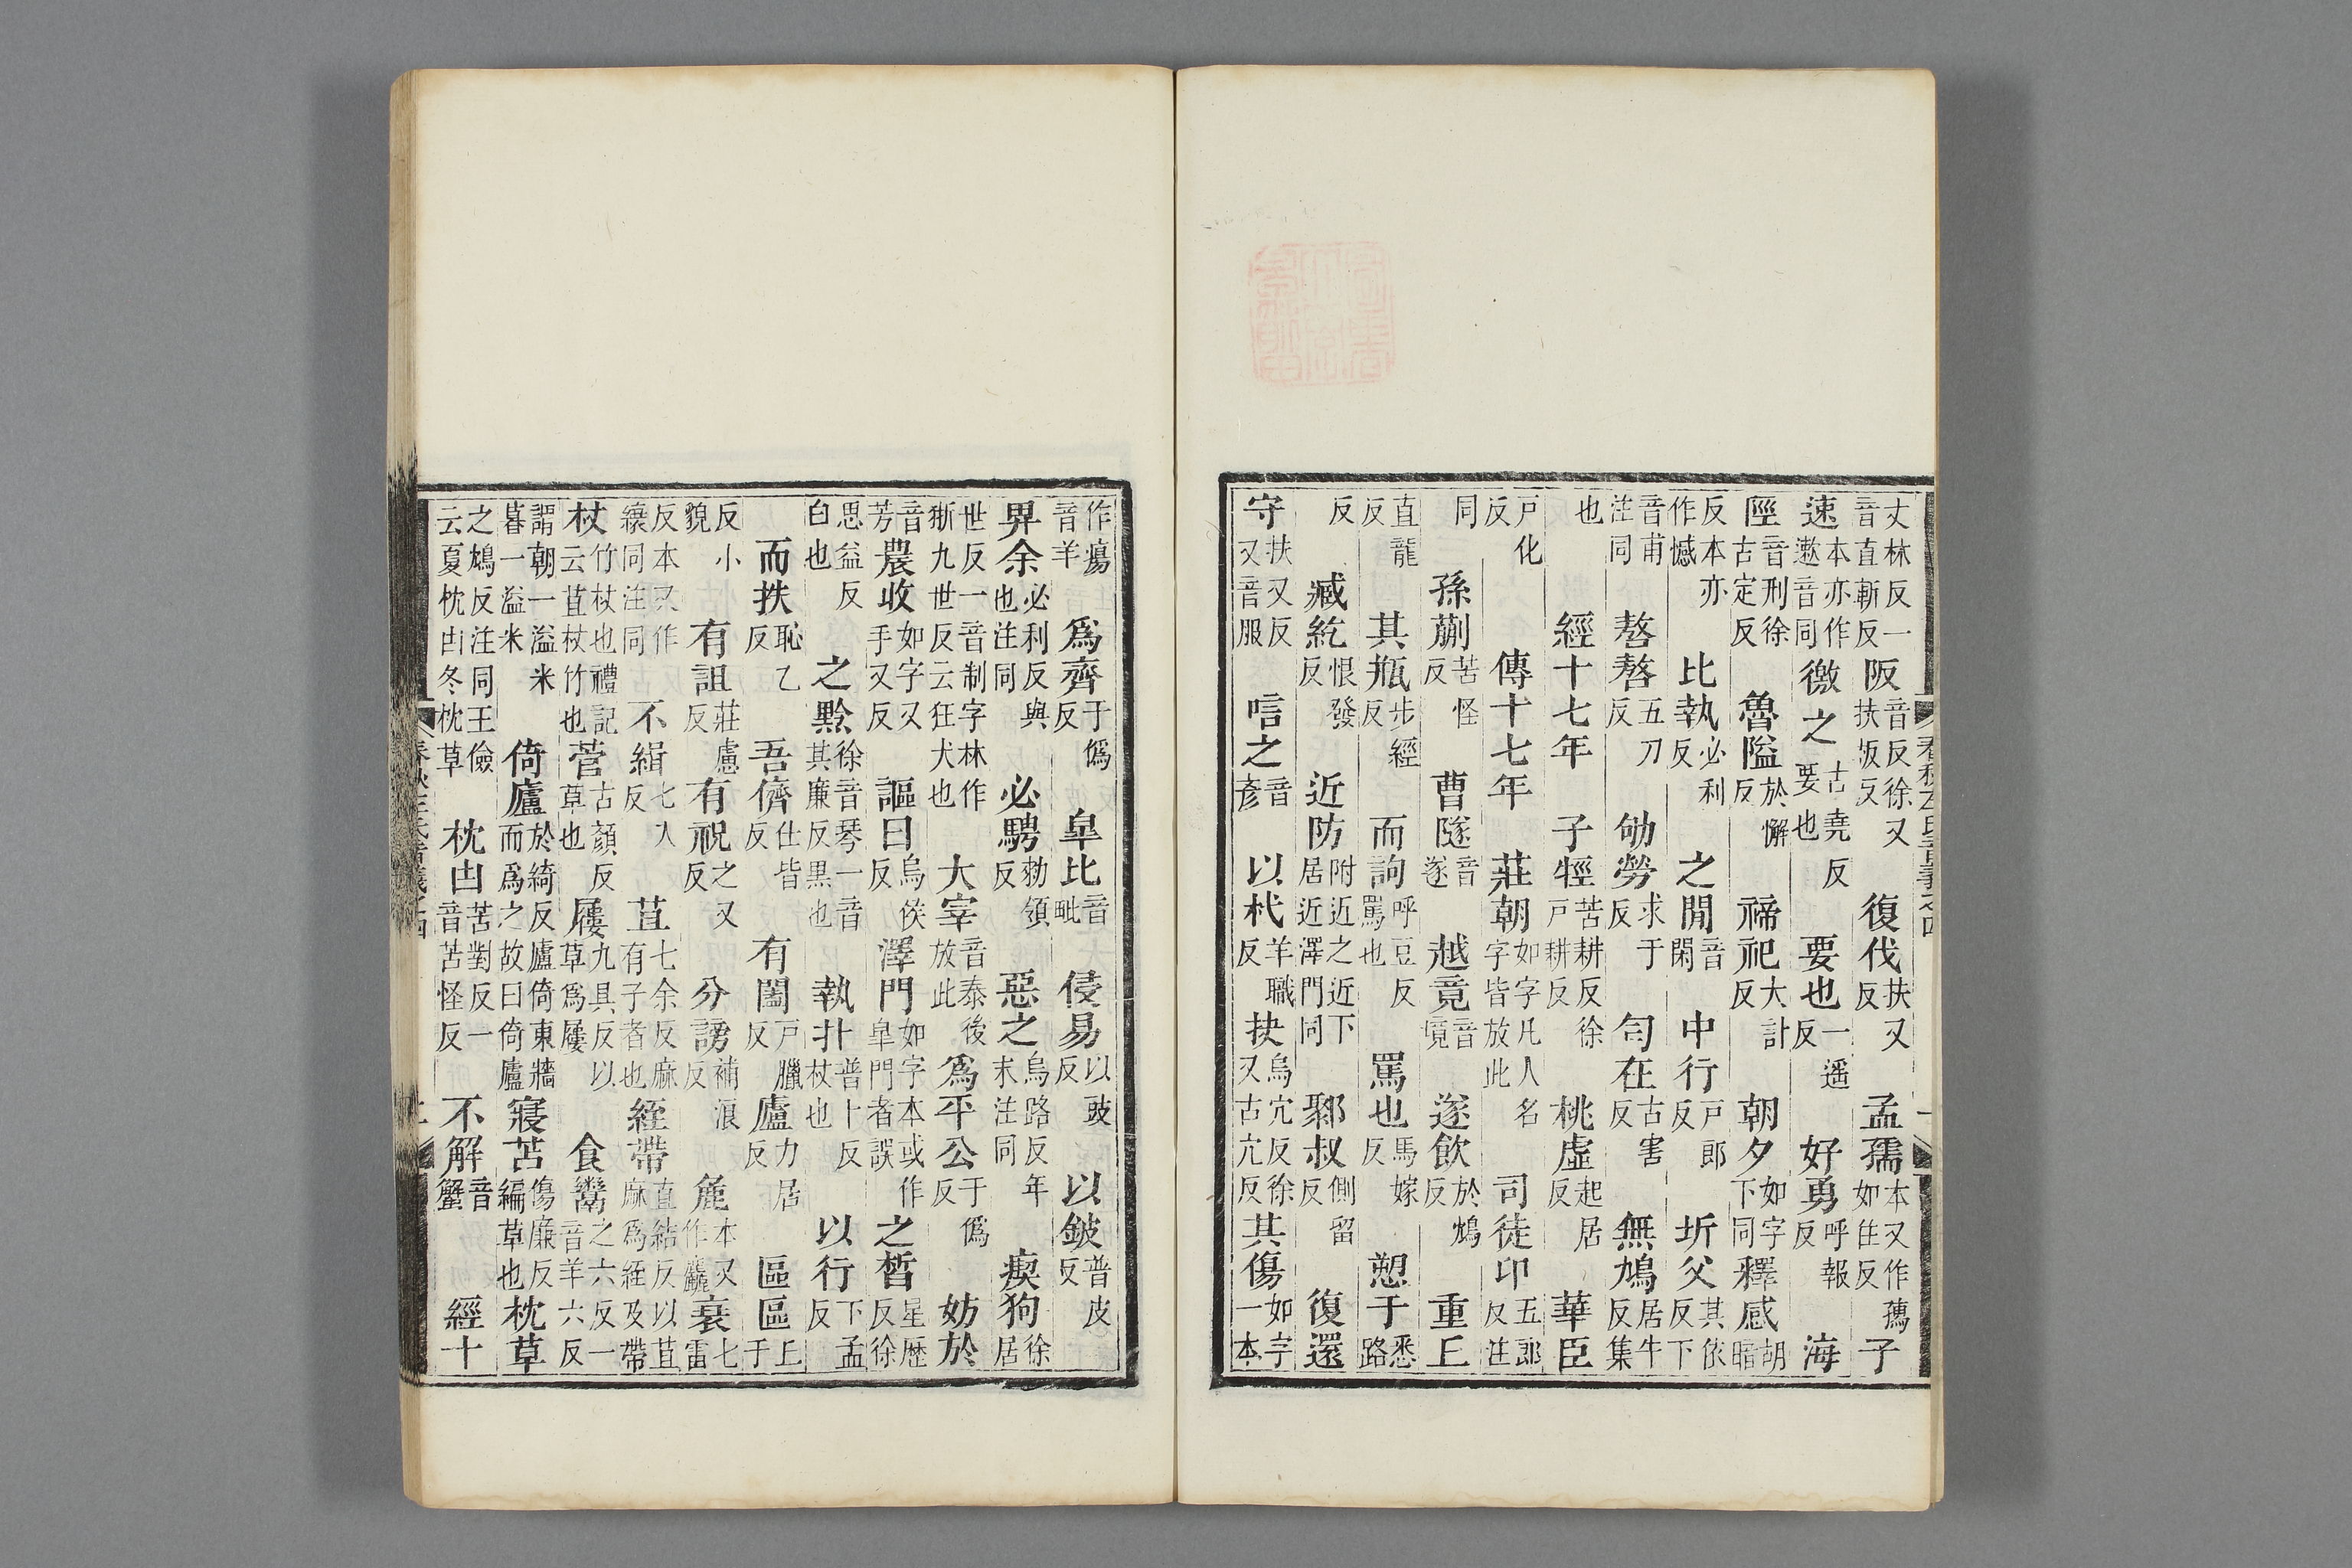 丈林反一音直斬反阪音反徐又扶坂反復伐扶又反孟孺本又作𡦗如住反子
速本亦作遬音同徼之古堯反要也要也一遥反好勇呼報反海
陘音刑徐古定反魯隘於懈反禘祀大計反朝夕如字下同釋感胡暗
反本亦作憾比執必利反之閒音閑中行戸郎反圻父其依反下
音甫注同嗸嗸五刀反劬勞求于反匄在古害反無鳩居牛反集
也經十七年子牼苦耕反徐戸耕反桃虛起居反華臣
戸化反傳十七年莊朝如字凡人名字皆放此司徒卬五郎反注
同孫蒯苦怪反曹隧音遂越竟音境遂飲於鴆反重丘
直龍反其瓶步經反而訽呼豆反罵也罵也馬嫁反愬于悉路
反臧紇恨發反近防附近之近下居近澤門同鄹叔側留反復還
守扶又反又音服唁之音彥以杙羊職反抉烏穴反徐又古穴反其傷如字一本
作瘍音羊爲齊于僞反皐比音毗侵易以豉反以鈹普皮反
畀余必利反與也注同必騁勑領反惡之烏路反年末注同瘈狗徐居
世反一音制字林作狾九世反云狂犬也大宰音泰後放此爲平公于僞反妨於
音芳農收如字又手又反謳曰烏侯反澤門如字本或作皐門者誤之皙星歴反徐
思益反白也之黔徐音琴一音其廉反黒也執扑普卜反杖也以行下孟反
而抶恥乙反吾儕仕皆反有闔戸臘反廬力居反區區上于
反小貌有詛莊慮反有祝之又反分謗補浪反麄本又作麤衰七雷
反本又作縗同注同不緝七入反苴七余反麻有子者也絰帶直結反以苴麻爲絰及帶
杖竹杖也禮記云苴杖竹也菅古顏反草也屨九具反以草爲屨食鬻之六反一音羊六反
謂朝一溢米暮一溢米倚廬於綺反廬倚東牆而爲之故曰倚廬寢苫傷廉反編草也枕草
之鴆反注同王儉云夏枕凷冬枕草枕凷苦對反一音苦怪反不解音蟹經十